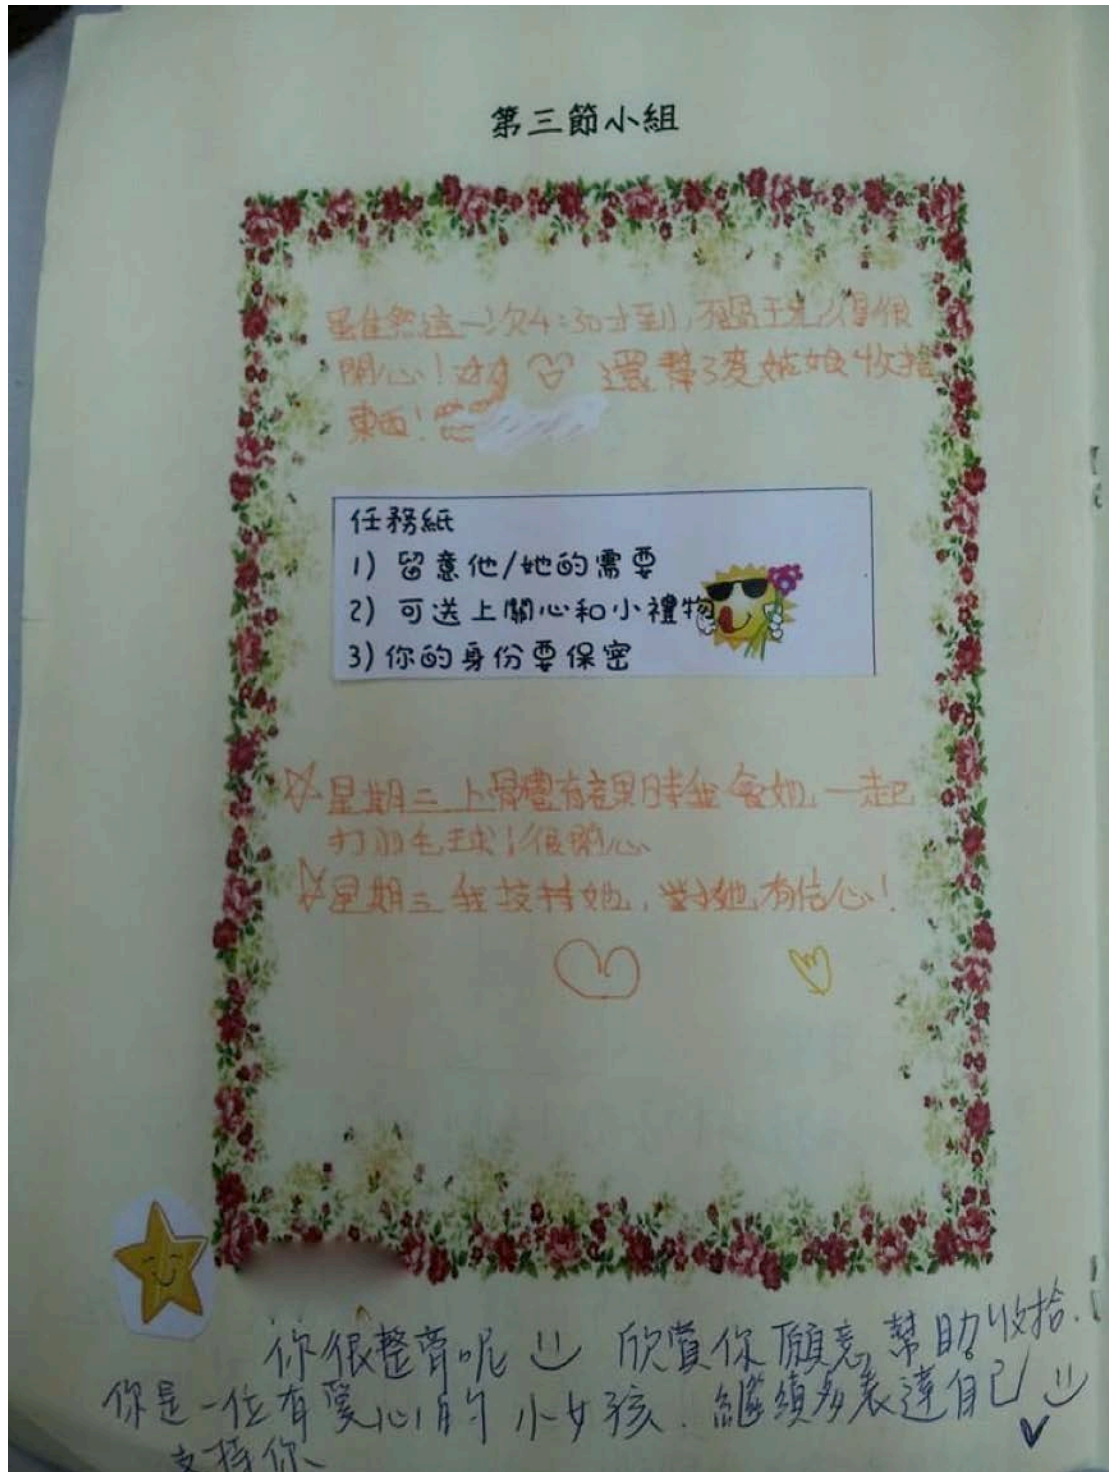 第三節小組
雖然這一次4:30才到,不過玩得很
開心! 還幫了麥姑娘收拾
東西!
任務紙
1) 留意他/她的需要
2) 可送上關心和小禮物
3) 你的身份要保密
星期二上體育課時我會她一起
打羽毛球!很開心
星期三我支持她,對她有信心!
你很整齊呢 欣賞你願意幫助收拾.
你是一位有愛心的小女孩.繼續多表達自己!
支持你